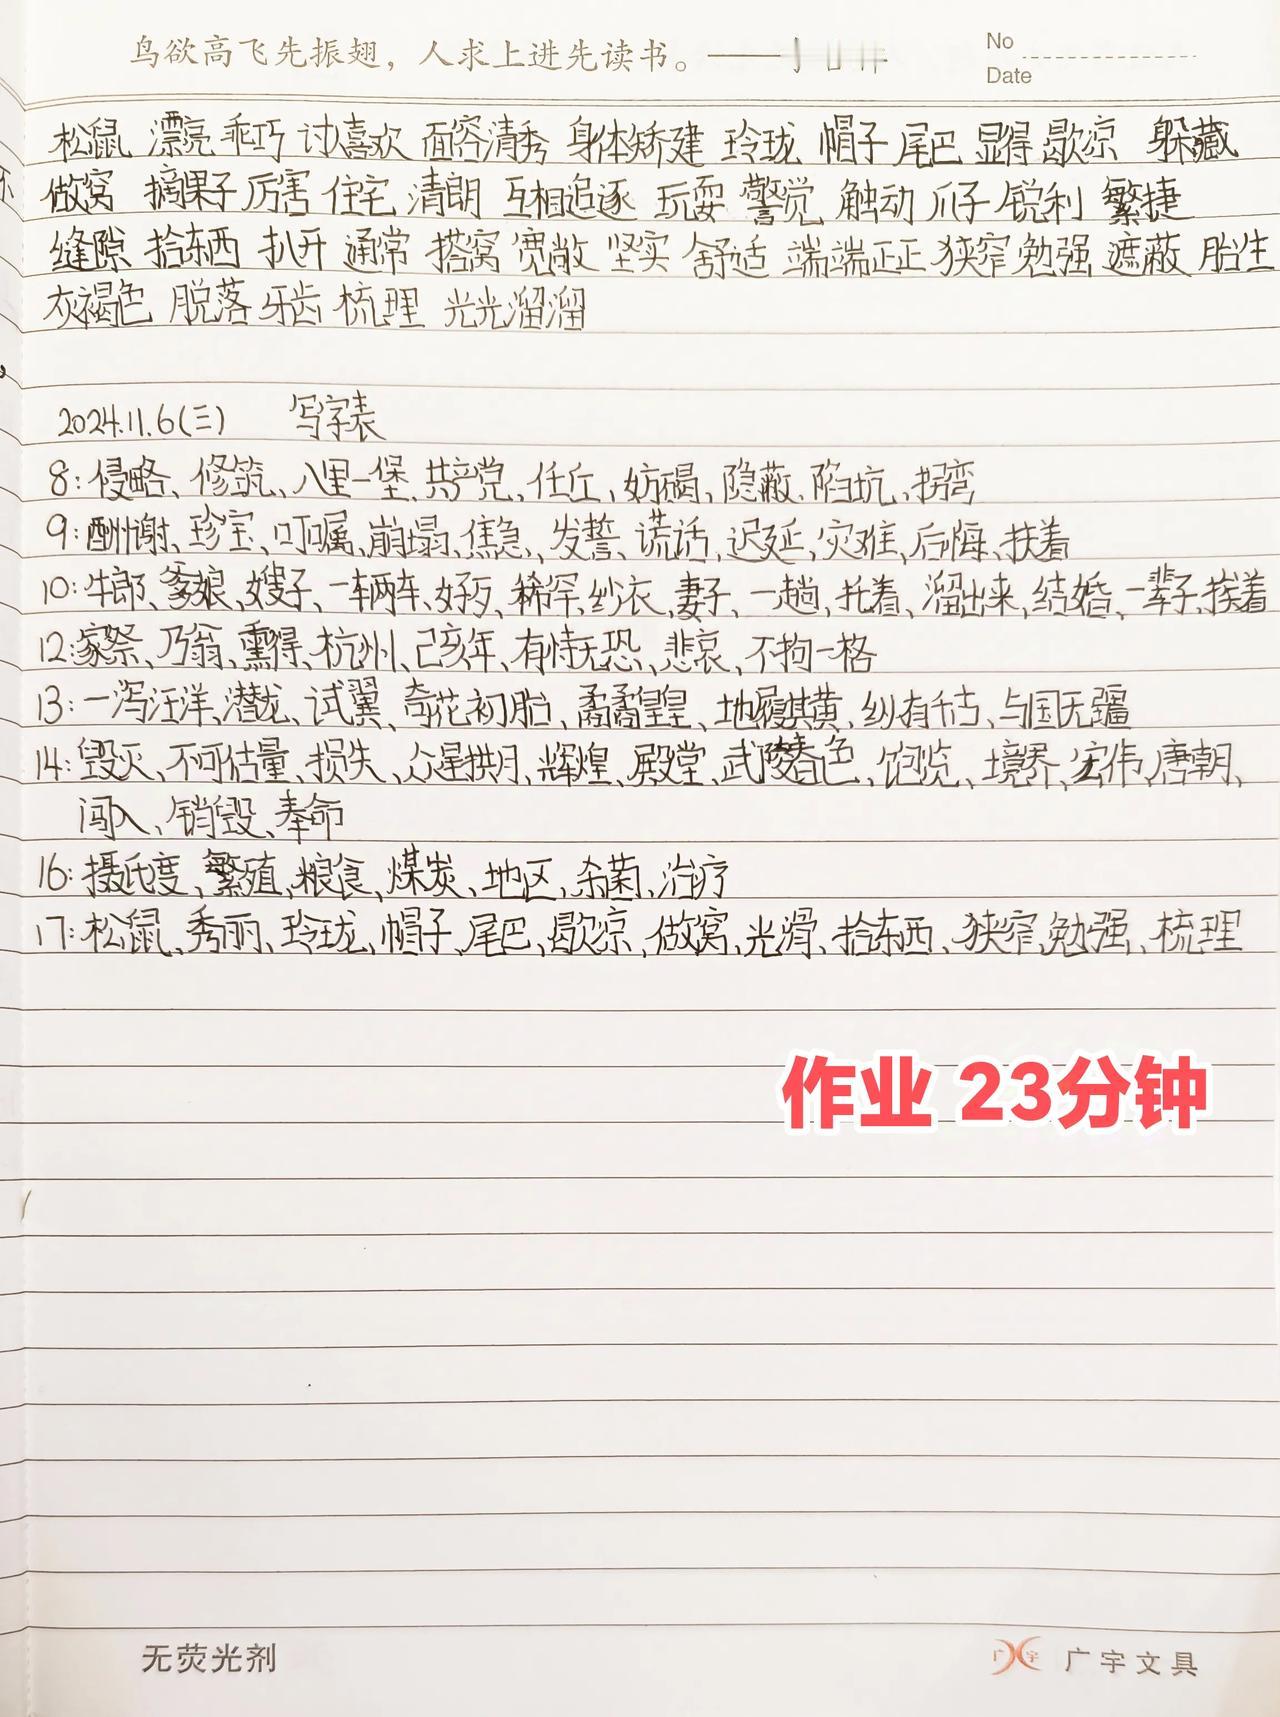 鸟欲高飞先振翅，人求上进先读书。——
No
Date
松鼠 漂亮 乖巧 讨喜欢 面容清秀 身体矫健 玲珑 帽子 尾巴 显得 歇凉 躲藏
做窝 摘果子 厉害 住宅 清朗 互相追逐 玩耍 警觉 触动 爪子 锐利 繁捷
缝隙 拾东西 扒开 通常 搭窝 宽敞 坚实 舒适 端端正正 狭窄 勉强 遮蔽 胎生
灰褐色 脱落 牙齿 梳理 光光溜溜
2024.11.6(三) 写字表
8:侵略、修筑、八里一堡、共产党、任丘、妨碍、隐蔽、陷坑、拐弯
9:酬谢、珍宝、叮嘱、崩塌、焦急、发誓、谎话、迟延、灾难、后悔、扶着
10:牛郎、爹娘、嫂子、一辆车、好歹、稀罕、纱衣、妻子、一趟、托着、溜出来、结婚、一辈子、挨着
12:家祭、乃翁、熏得、杭州、己亥年、有恃无恐、悲哀、不拘一格
13:一泻汪洋、潜龙、试翼、奇花初胎、矞矞皇皇、地履其黄、纵有千古、与国无疆
14:毁灭、不可估量、损失、众星拱月、辉煌、殿堂、武陵春色、饱览、境界、宏伟、唐朝、
闯入、销毁、奉命
16:摄氏度、繁殖、粮食、煤炭、地区、杀菌、治疗
17:松鼠、秀丽、玲珑、帽子、尾巴、歇凉、做窝、光滑、拾东西、狭窄、勉强、梳理
作业 23分钟
无荧光剂
广宇 广宇文具